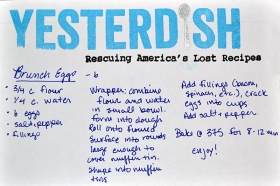 YESTERDISH
Rescuing America's Lost Recipes
Brunch Eggs - 6
• 3/4 c flour
• 1/4 c. water
• 6 eggs
• salt + pepper
• fillings
Wrapper: combine
flour and water
in small bowl.
form into dough
Roll onto floured
surface into rounds
large enough to
cover muffin tin.
Shape into muffin
tins
Add fillings (bacon,
spinach, etc.), crack
eggs into cups
Add salt + pepper.
Bake @ 375 for 8-12 min
enjoy!